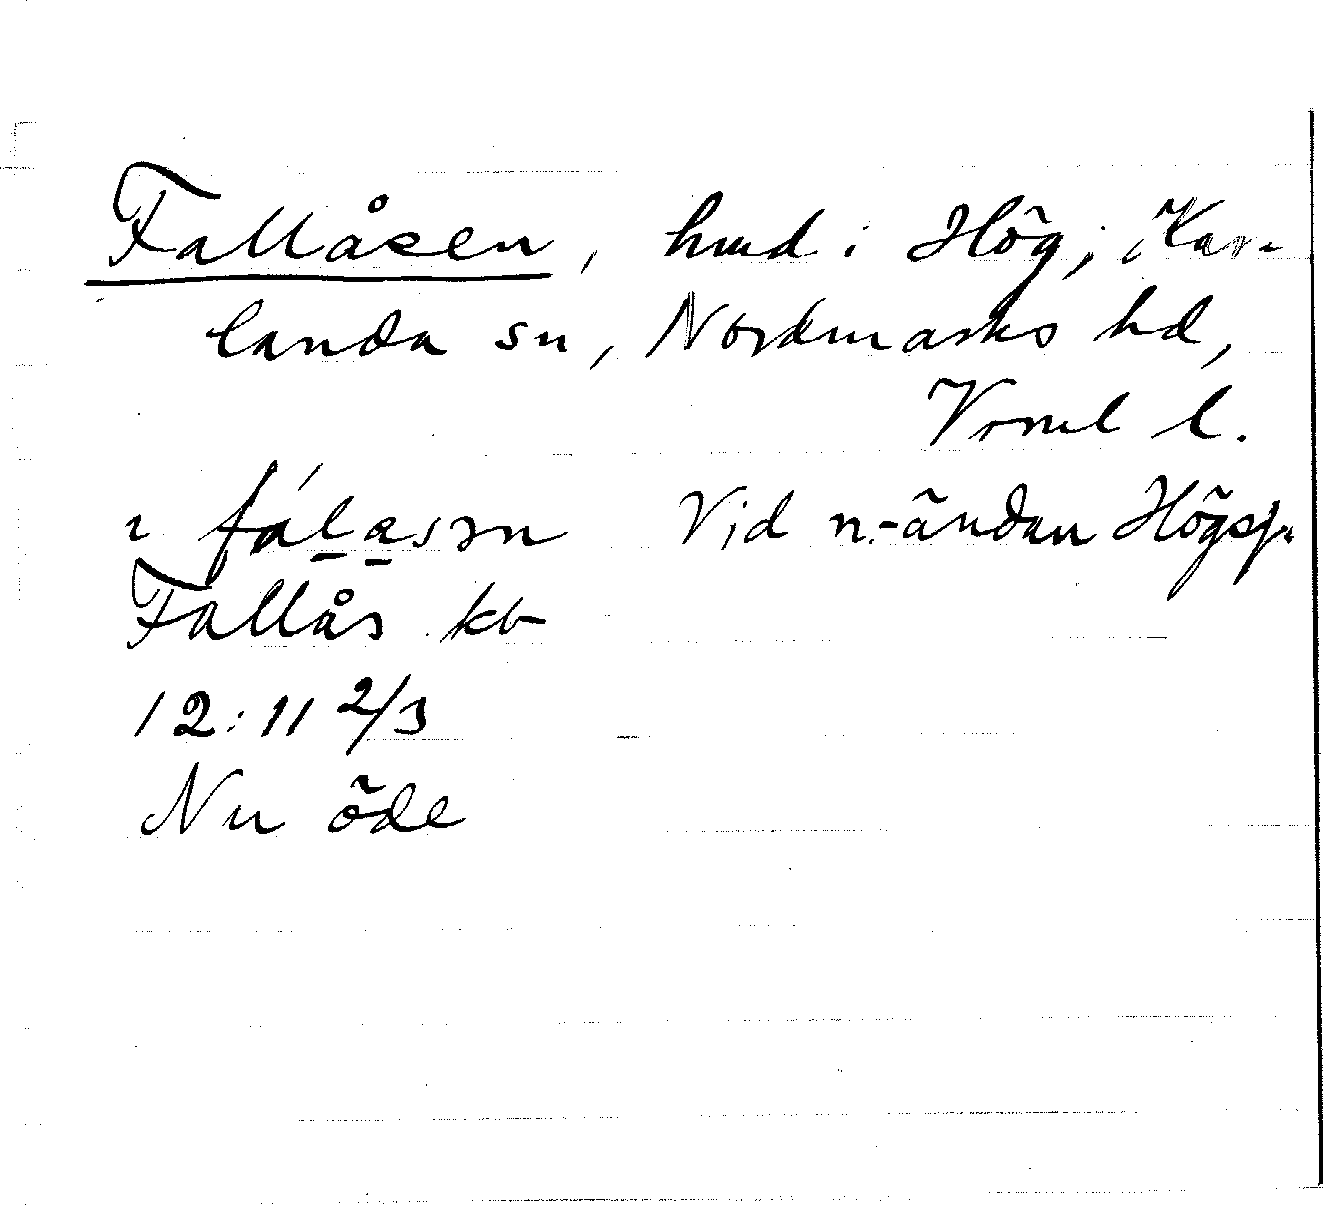 Fallåsen, hmd i Hög, Kar-
landa sn, Nordmarks hd,
Vrml l.
ı fálasən Vid n.-ändan Högsj.
Fallås kb
12:11 2/3
Nu öde